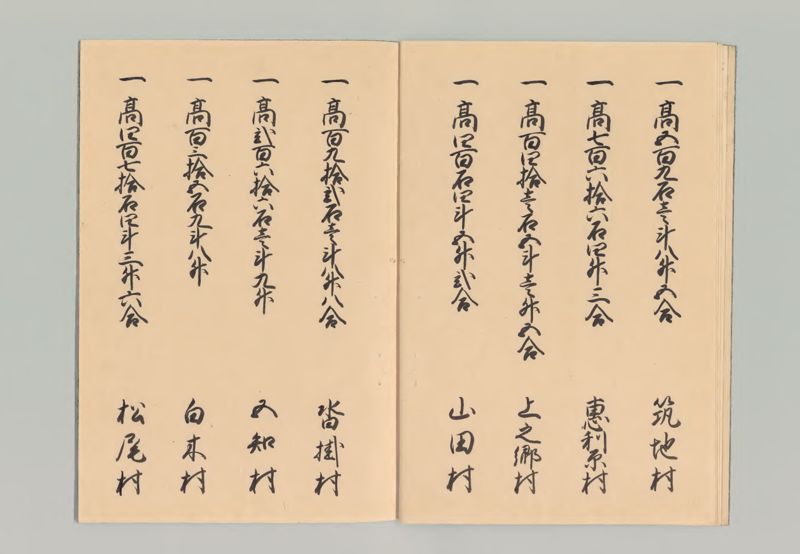 一 髙五百九石壱斗八升五合 筑地村
一 髙七百六拾六石四升三合 恵利原村
一 髙百四拾壱石五斗壱升五合 上之郷村
一 髙四百石四斗五升弐合 山田村
一 髙百九拾弐石壱斗八升八合 沓掛村
一 髙弐百六拾六石壱斗九升 五知村
一 髙百三拾五石九斗八升 白木村
一 髙四百七拾石四斗三升六合 松尾村